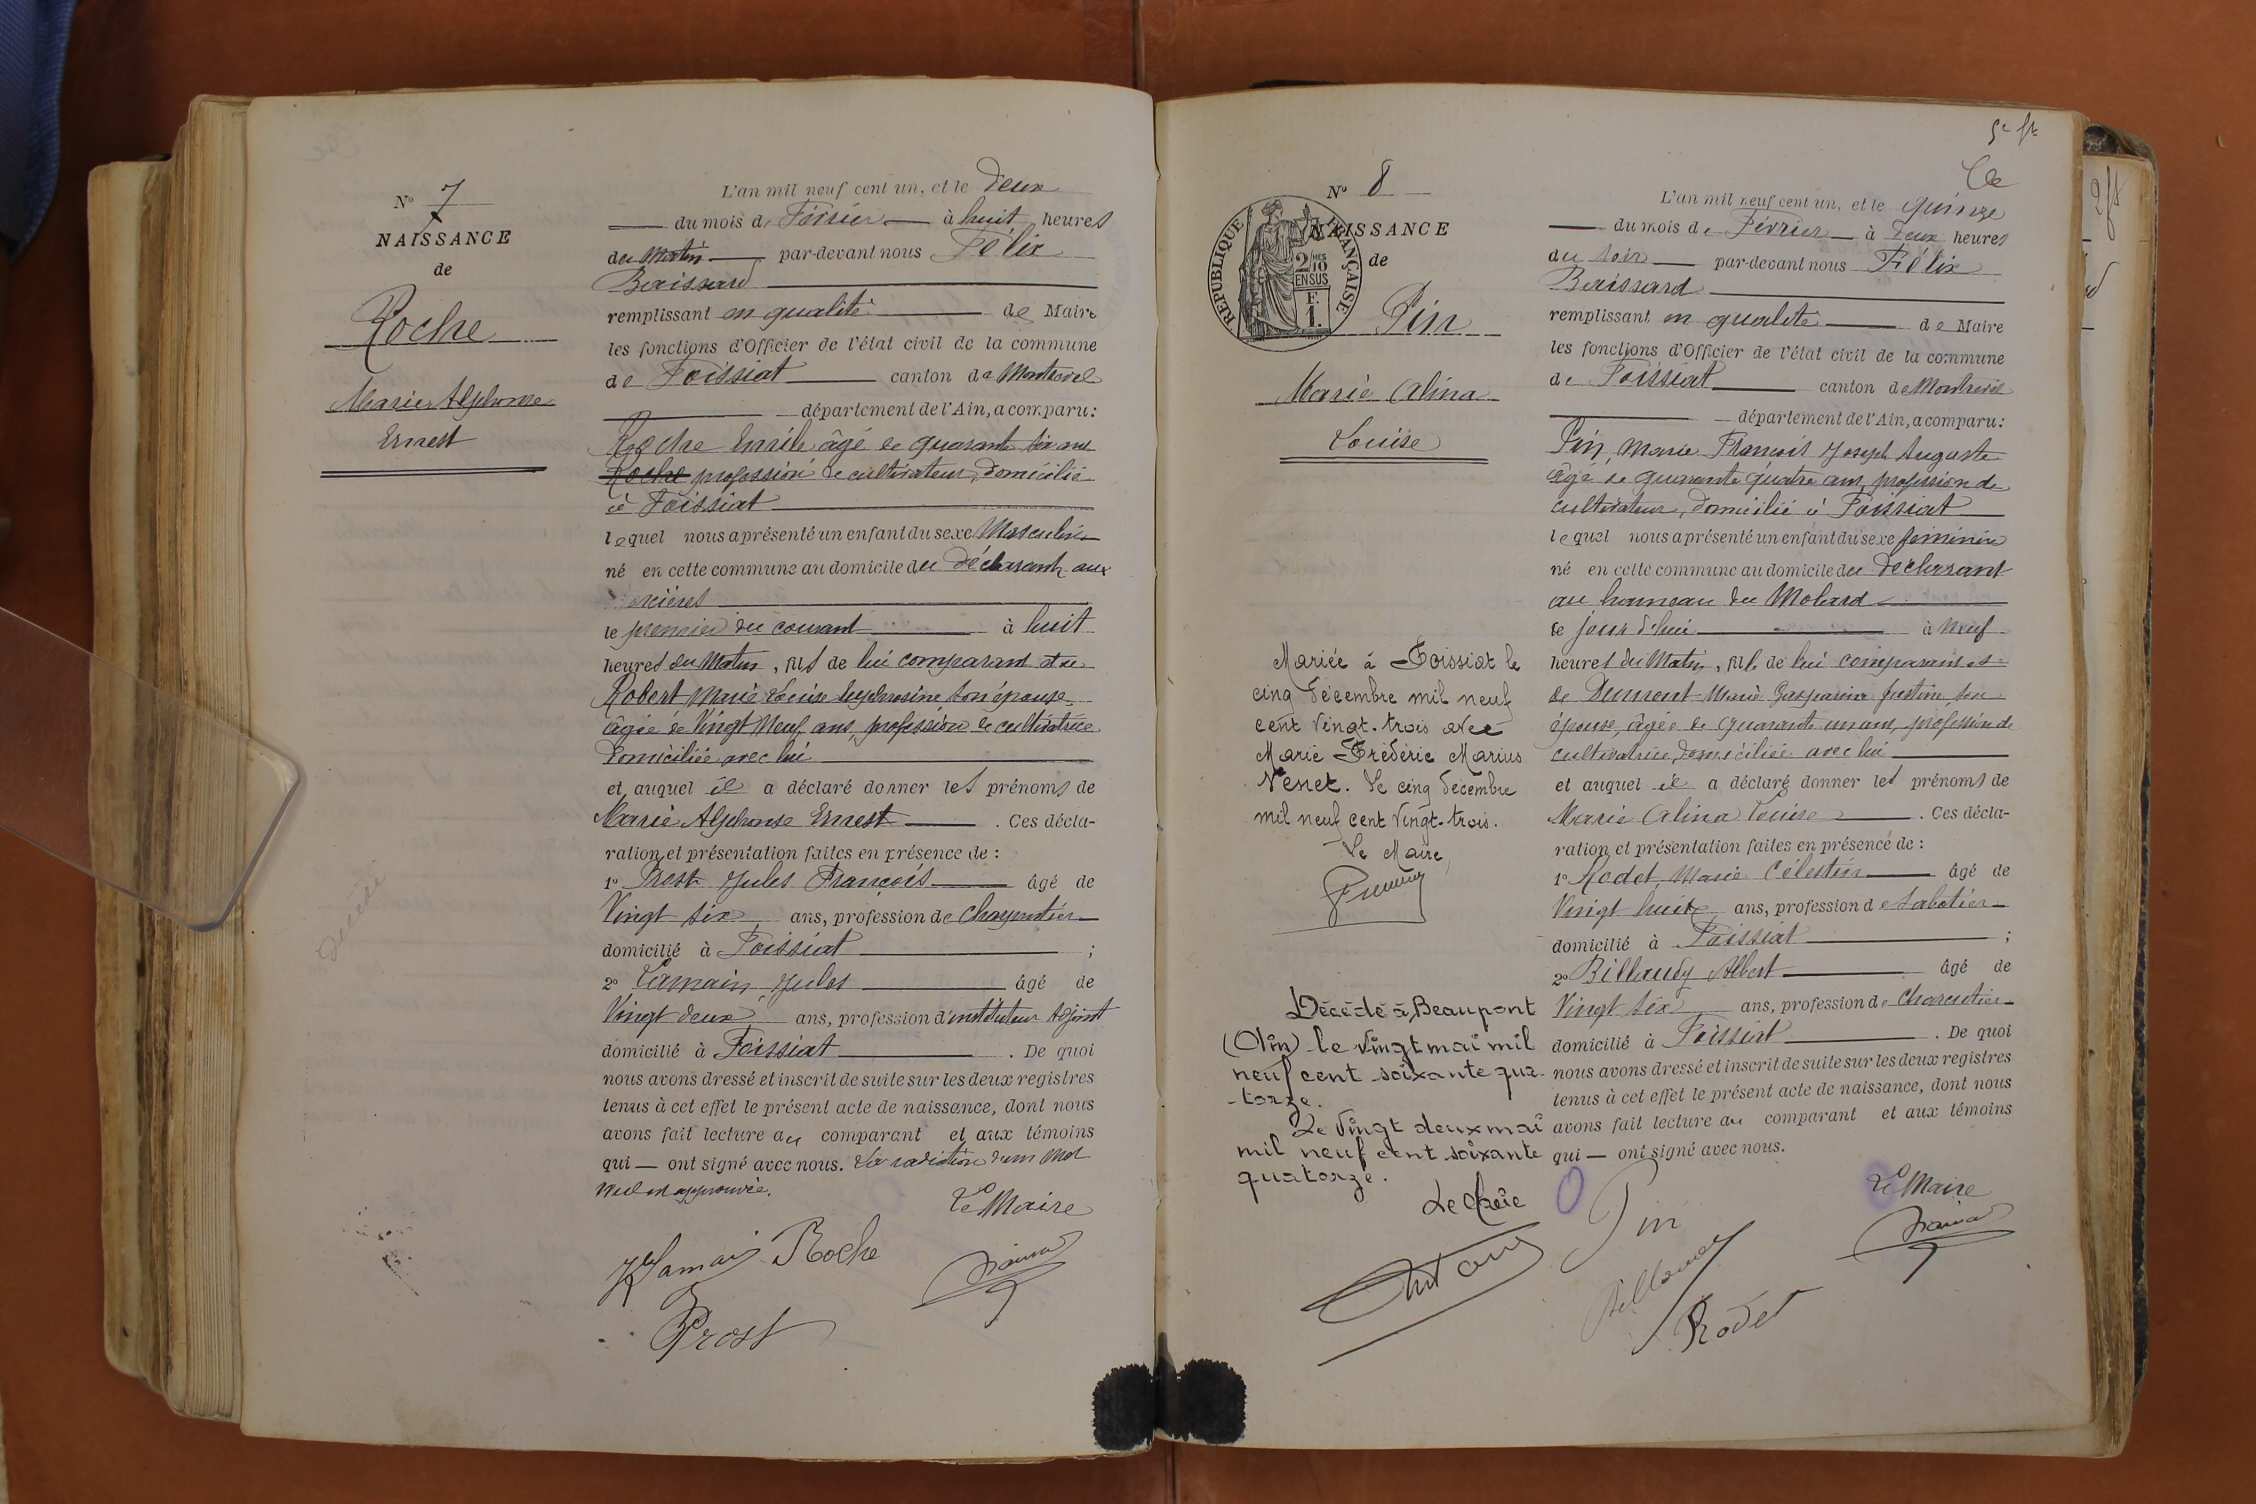 N° 7
NAISSANCE
de
Roche
Marie Alphonse
Ernest
L'an mil neuf cent un, et le Deux
du mois de Février à huit heures
du Matin par-devant nous Félix
Boissard
remplissant en qualité de Maire
les fonctions d'Officier de l'état civil de la commune
de Foissiat canton de Montrevel
département de l'Ain, a comparu:
Roche Emile âgé de quarante six ans
Roche profession de cultivateur, domicilié
à Foissiat
lequel nous a présenté un enfant du sexe Masculin
né en cette commune au domicile du déclarant aux
le premier du courant à huit
heures du Matin, fils de lui comparant et de
Robert Marie Louise Euphrosine son épouse
âgée de Vingt Neuf ans, profession de cultivatrice
domiciliée avec lui
et auquel il a déclaré donner les prénoms de
Marie Alphonse Ernest . Ces décla-
ration et présentation faites en présence de :
1° Prost Jules François âgé de
Vingt six ans, profession de Charpentier
domicilié à Foissiat ;
2° Lamain Jules âgé de
Vingt deux ans, profession d'instituteur adjoint
domicilié à Foissiat . De quoi
nous avons dressé et inscrit de suite sur les deux registres
tenus à cet effet le présent acte de naissance, dont nous
avons fait lecture au comparant et aux témoins
qui — ont signé avec nous. La radiation d'un Mot
nul est approuvée.
Le Maire
Lamain Roche
Prost
5e ft
N° 8
REPUBLIQUE FRANÇAISE
2/10 EN SUS
F. 1.
NAISSANCE
de
Pin
Marie Alina
Louise
Mariée à Foissiat le
cinq Décembre mil neuf
cent vingt-trois avec
Marie Frédéric Marius
Venet. Le cinq Décembre
mil neuf cent vingt-trois.
Le Maire,
Décédé à Beaupont
(Ain) le vingt mai mil
neuf cent soixante qua-
-torze.
Le vingt deux mai
mil neuf cent soixante
quatorze.
L'an mil neuf cent un, et le quinze
du mois de Février à Deux heures
du soir par-devant nous Félix
Boissard
remplissant en qualité de Maire
les fonctions d'Officier de l'état civil de la commune
de Foissiat canton de Montrevel
département de l'Ain, a comparu:
Pin, Marie François Joseph Auguste
âgé de quarante quatre ans, profession de
cultivateur, domicilié à Foissiat
lequel nous a présenté un enfant du sexe féminin
né en cette commune au domicile du déclarant
au hameau du Molard
le jour d'hui à Neuf
heures du Matin, fille de lui comparant et
de Dumont Marie Gasparine Justine, son
épouse, âgée de quarante un ans, profession de
cultivatrice, domiciliée avec lui
et auquel il a déclaré donner les prénoms de
Marie Alina Louise . Ces décla-
ration et présentation faites en présence de :
1° Rodet, Marie Célestin âgé de
Vingt huit ans, profession de sabotier
domicilié à Foissiat ;
2° Billoudy Albert âgé de
Vingt six ans, profession de Charcutier
domicilié à Foissiat . De quoi
nous avons dressé et inscrit de suite sur les deux registres
tenus à cet effet le présent acte de naissance, dont nous
avons fait lecture au comparant et aux témoins
qui — ont signé avec nous.
Le Maire
Pin
Rodet